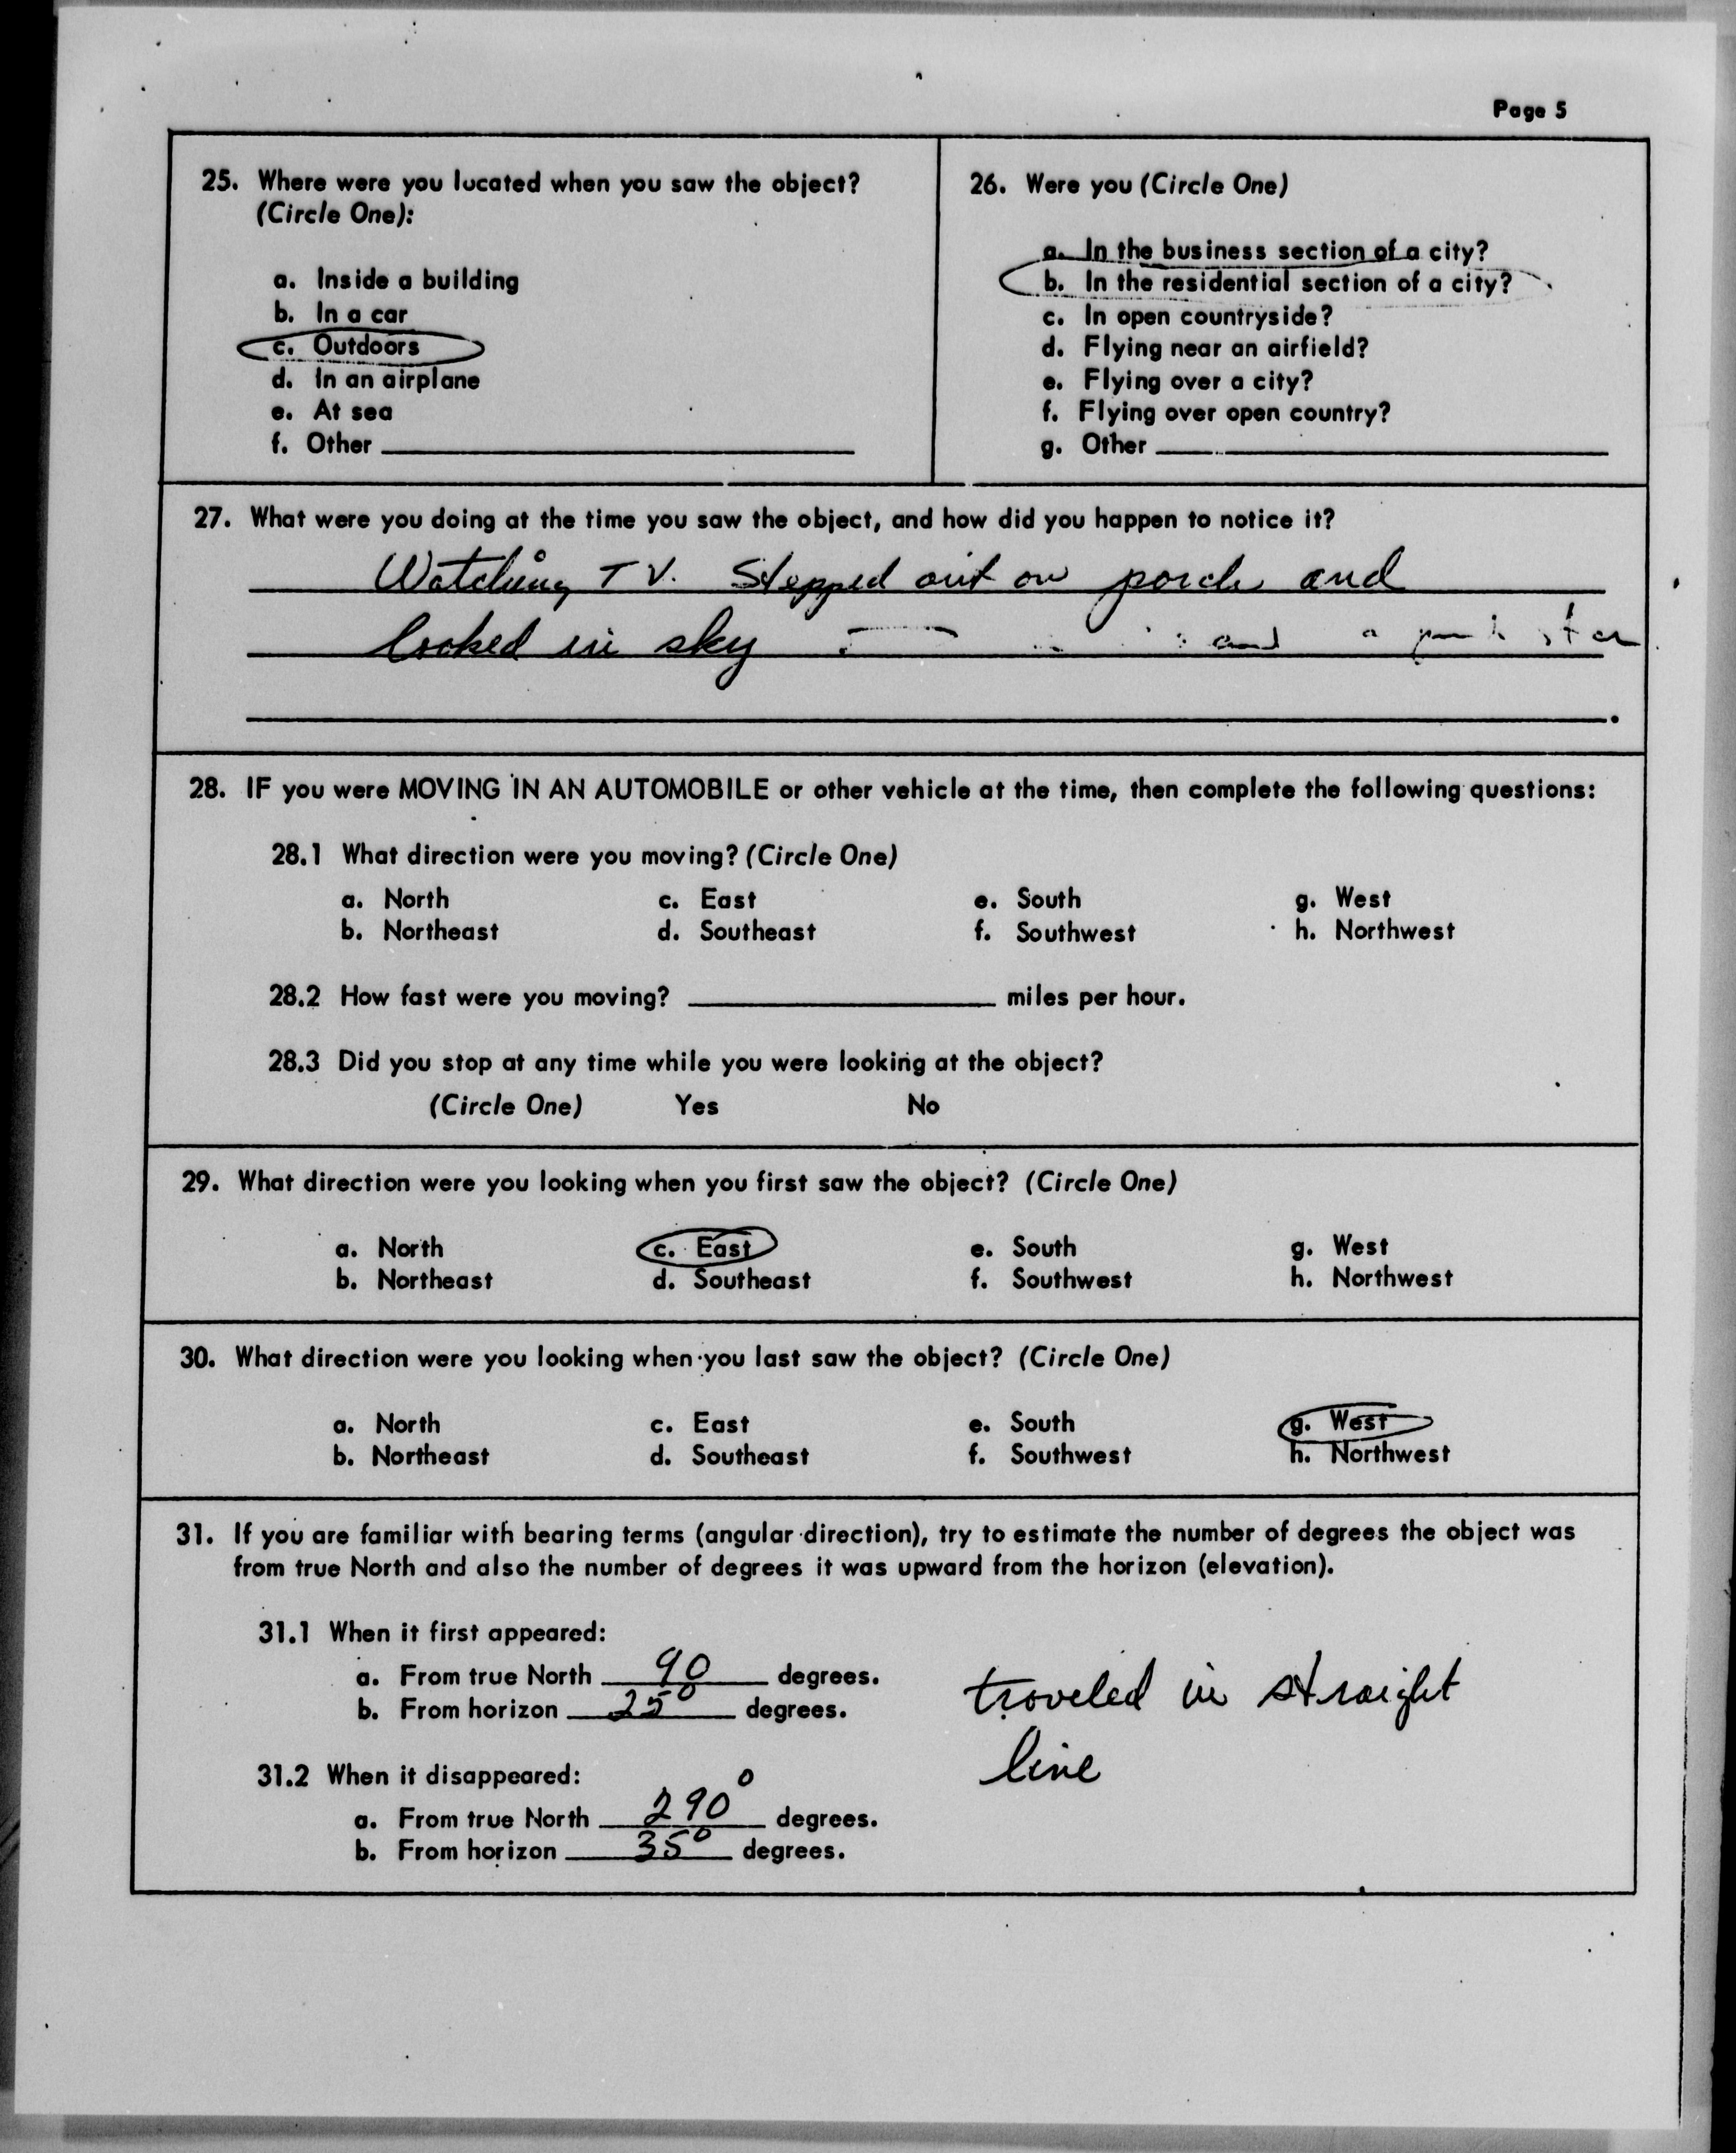 Page 5
25. Where were you located when you saw the object?
(Circle One):
a. Inside a building
b. In a car
c. Outdoors
d. In an airplane
e. At sea
f. Other
26. Were you (Circle One)
a. In the business section of a city?
b. In the residential section of a city?
c. In open countryside?
d. Flying near an airfield?
e. Flying over a city?
f. Flying over open country?
g. Other
27. What were you doing at the time you saw the object, and how did you happen to notice it?
Watching TV. Stepped out on porch and
looked in sky and a
28. IF you were MOVING IN AN AUTOMOBILE or other vehicle at the time, then complete the following questions:
28.1 What direction were you moving? (Circle One)
a. North c. East e. South g. West
b. Northeast d. Southeast f. Southwest h. Northwest
28.2 How fast were you moving? miles per hour.
28.3 Did you stop at any time while you were looking at the object?
(Circle One) Yes No
29. What direction were you looking when you first saw the object? (Circle One)
a. North c. East e. South g. West
b. Northeast d. Southeast f. Southwest h. Northwest
30. What direction were you looking when you last saw the object? (Circle One)
a. North c. East e. South g. West
b. Northeast d. Southeast f. Southwest h. Northwest
31. If you are familiar with bearing terms (angular direction), try to estimate the number of degrees the object was
from true North and also the number of degrees it was upward from the horizon (elevation).
31.1 When it first appeared:
a. From true North 90 degrees.
b. From horizon 25° degrees.
31.2 When it disappeared:
a. From true North 290° degrees.
b. From horizon 35° degrees.
traveled in straight
line